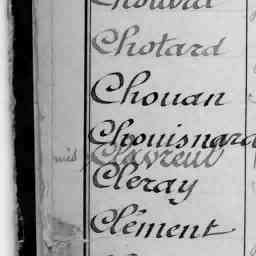 Chotard
Chouan
Chouisnard
Clavreul
Cleray
Clément